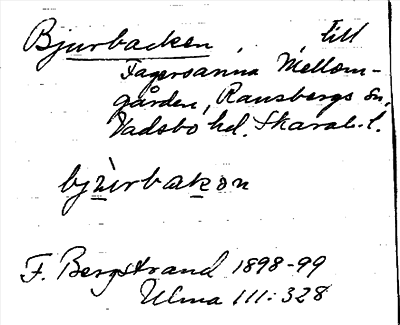 Bjurbacken, till
Fagersanna Mellom-
gården, Ransbergs sn,
Vadsbo hd. Skarab. l.
bjùrbakon
F. Bergstrand 1898-99
Ulma 111:328